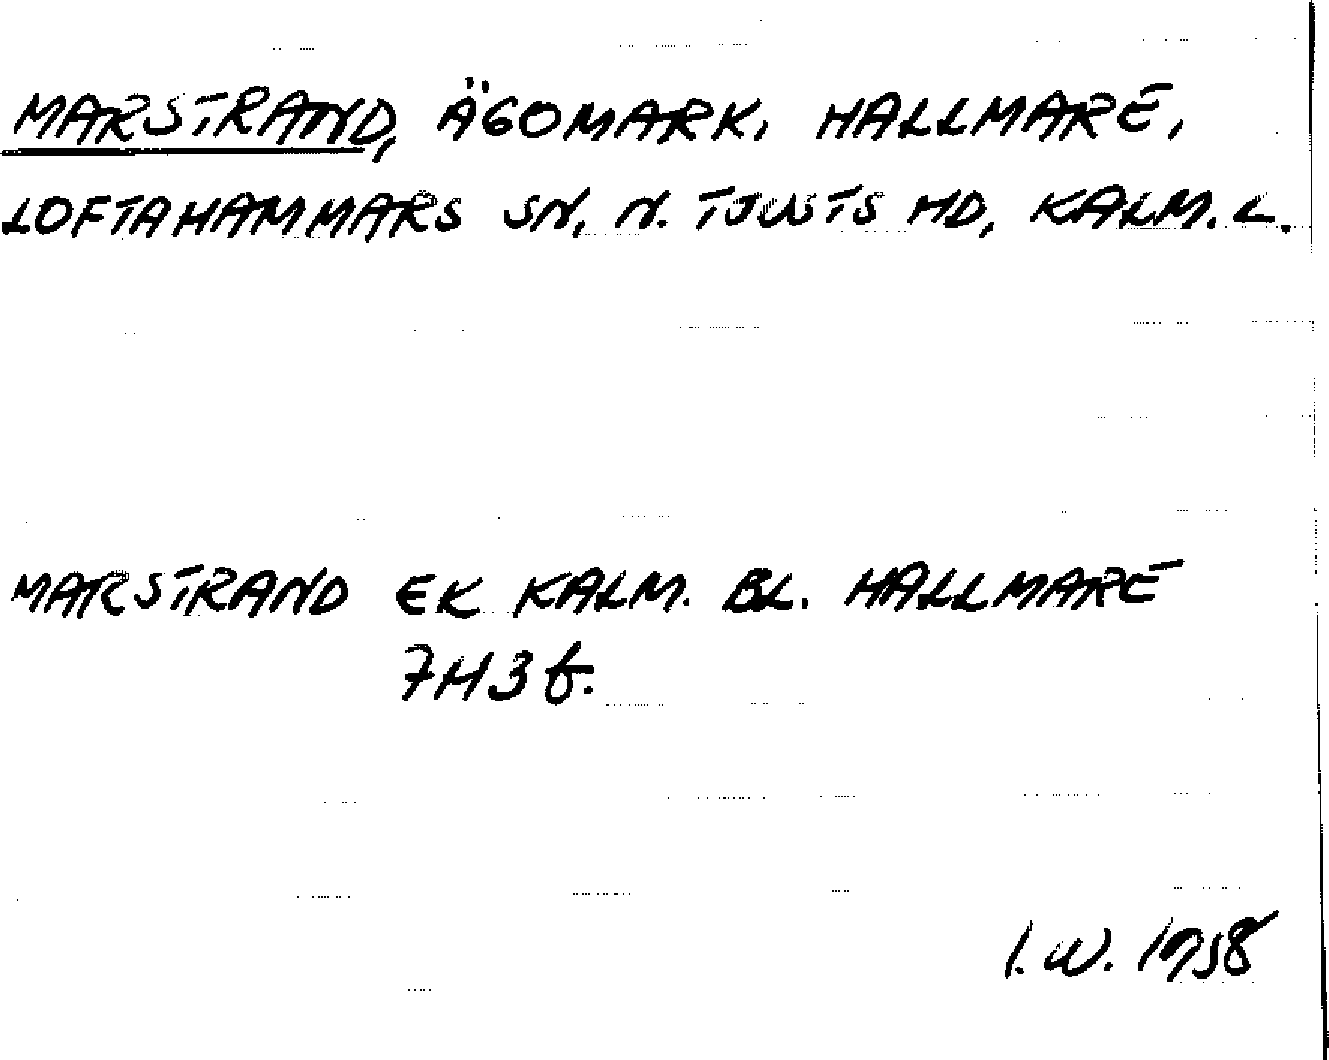 MARSTRAND, ÄGOMARK, HALLMARE,
LOFTAHAMMARS SN, N. TJUSTS HD, KALM. L.
MARSTRAND EK KALM. BL. HALLMARE
7H3f.
I. W. 1958